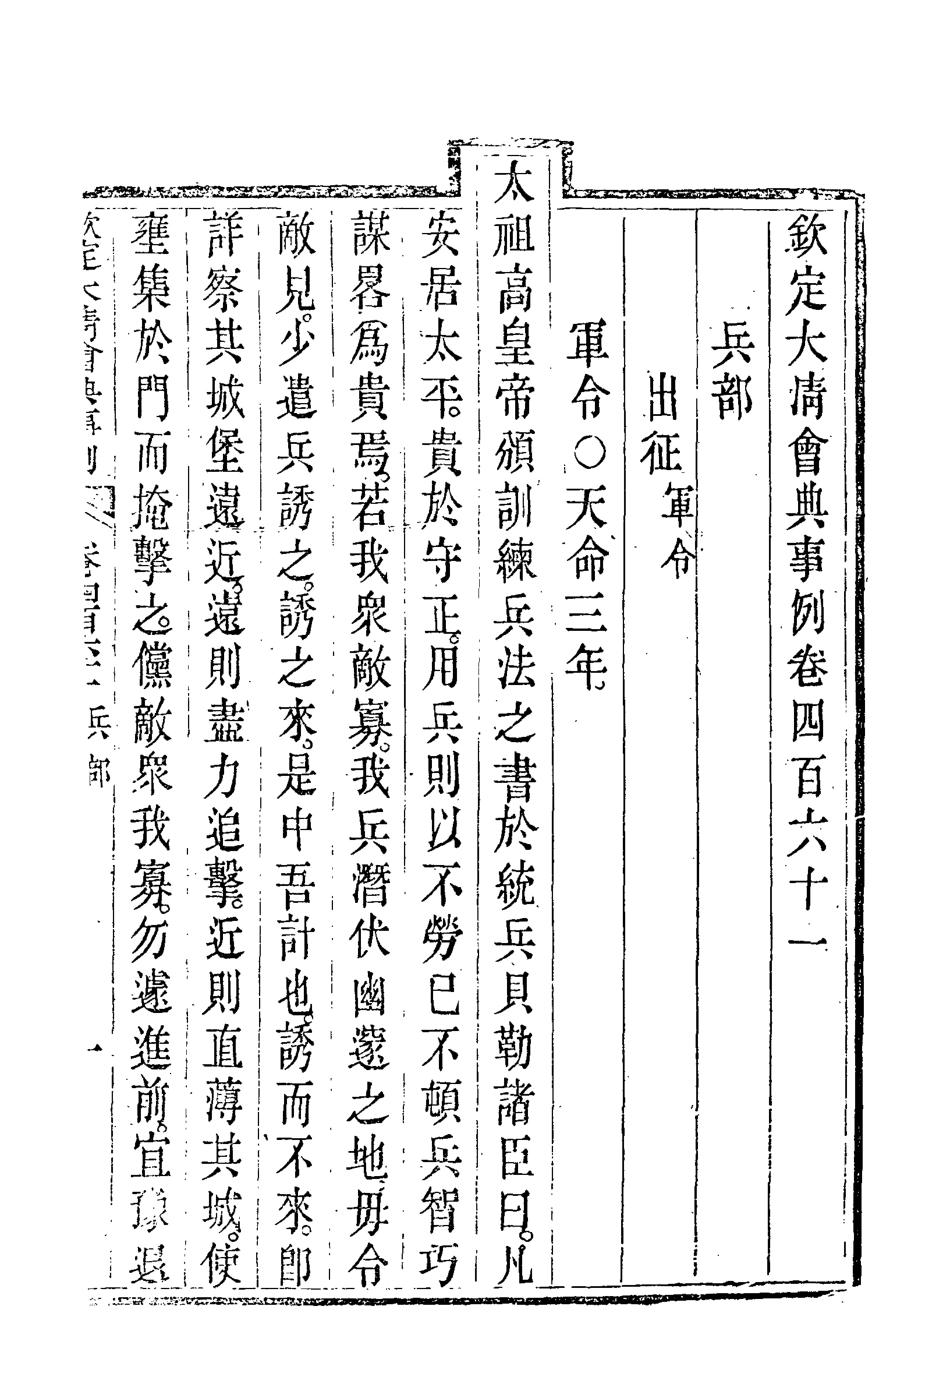 欽定大淸會典事例卷四百六十一
兵部
出征軍令
軍令○天命三年。
太祖高皇帝頒訓練兵法之書於統兵貝勒諸臣曰。凡
安居太平。貴於守正。用兵則以不勞己不頓兵。智巧
謀畧爲貴焉。若我衆敵寡。我兵潛伏幽邃之地。毋令
敵見。少遣兵誘之。誘之來。是中吾計也。誘而不來。卽
詳察其城堡遠近。遠則盡力追擊。近則直薄其城。使
壅集於門而掩擊之。儻敵衆我寡。勿遽進前。宜豫退
欽定大淸會典事例 卷四百六十一 兵部 一